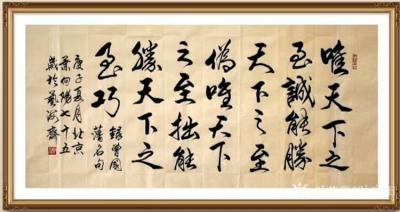 唯天下之
至誠能勝
天下之至
僞唯天下
之至拙能
勝天下之
至巧
錄曾國
藩名句
庚子夏月北京
葉向陽七十五
歲於藝海齋